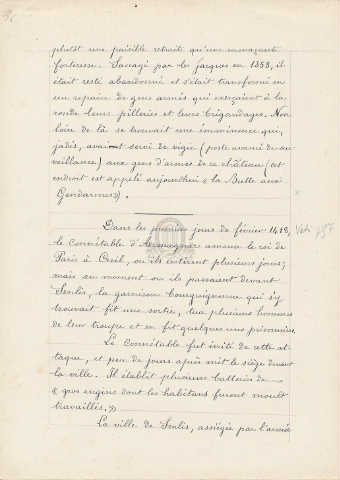 plutôt une paisible retraite qu'une menaçante
forteresse. Saccagé par les Jacques en 1358, il
était resté abandonné et s'était transformé en
un repaire de gens armés qui exerçaient à la
ronde leurs pilleries et leurs brigandages. Non
loin de là se trouvait une imminence qui,
jadis, avait servi de vigie (poste avancé de sur
veillance) aux gens d'armes de ce château (cet
endroit est appelé aujourd'hui « la Butte aux
Gendarmes »).
Dans les premiers jours de février 1418,
le Connétable d'Armagnac amena le roi de
Paris à Creil, où ils restèrent plusieurs jours;
mais au moment où ils passaient devant
Senlis, la garnison bourguignonne qui s'y
trouvait fit une sortie, tua plusieurs hommes
de leur troupe et en fit quelques uns prisonniers.
Le Connétable fut irrité de cette at
taque, et peu de jours après mit le siège devant
la ville. Il établit plusieurs batteries de
« gros engins dont les habitans furent moult
travaillés. »
La ville de Senlis, assiégée par l'armée